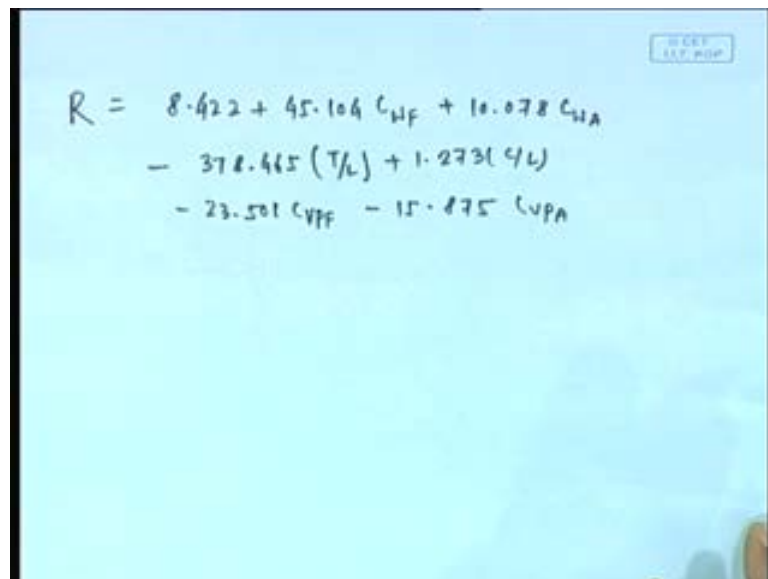 R = 8.422 + 45.104 C_WF + 10.078 C_WA
- 378.465 (T/L) + 1.273 (C/L)
- 23.501 C_VPF - 15.875 C_VPA